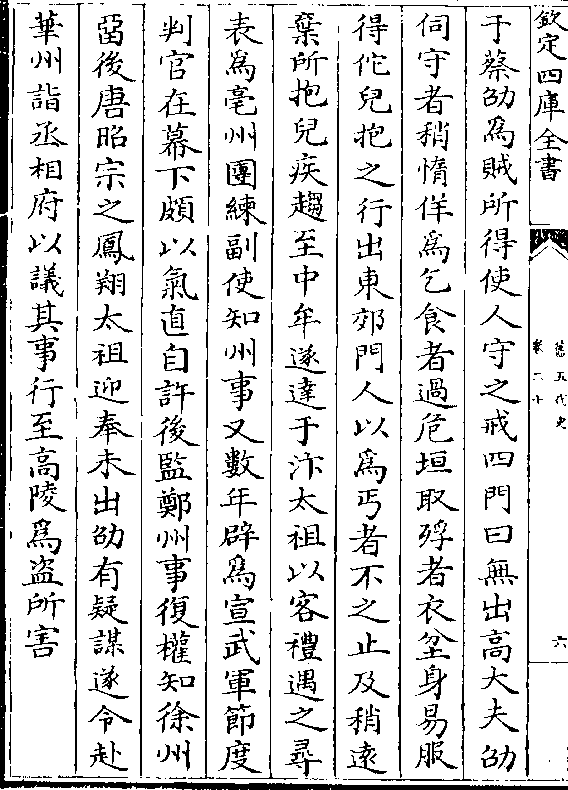 欽定四庫全書
舊五代史
卷二十
六
于蔡劭為賊所得使人守之戒四門曰無出高大夫劭
伺守者稍惰佯為乞食者過危垣取殍者衣坌身易服
得佗兒抱之行出東郊門人以為丐者不之止及稍遠
棄所抱兒疾趨至中牟遂達于汴太祖以客禮遇之尋
表為亳州團練副使知州事又數年辟為宣武軍節度
判官在幕下頗以氣直自許後監鄭州事復權知徐州
留後唐昭宗之鳳翔太祖迎奉未出劭有疑謀遂令赴
華州詣丞相府以議其事行至高陵為盜所害